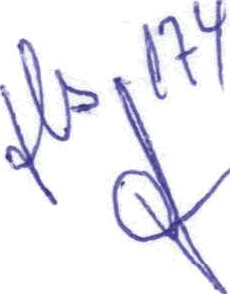 fls 174